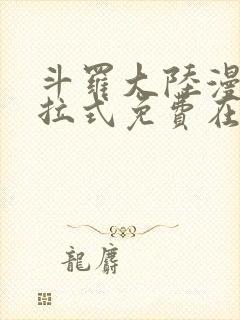 斗羅大陸漫
拉式免費在
龍麝